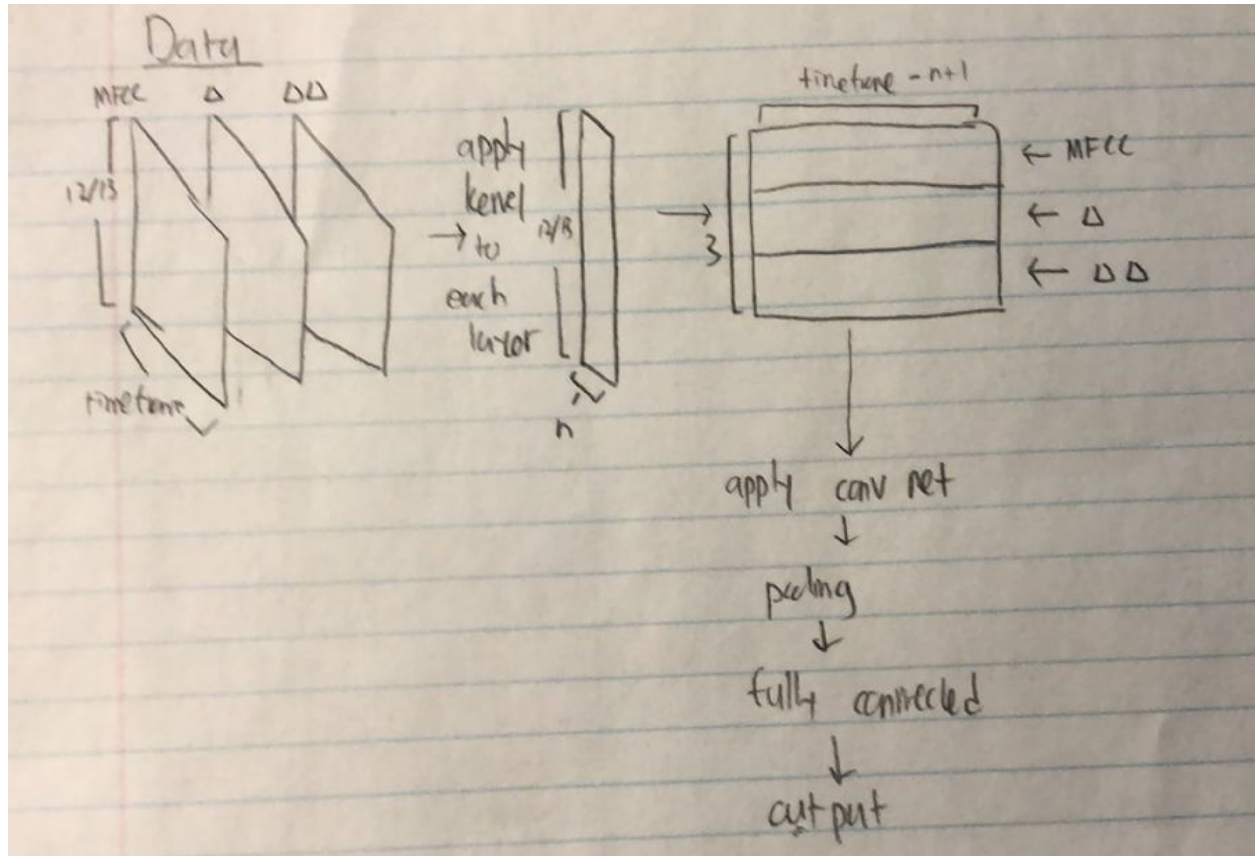 Data
MFCC Δ ΔΔ
12/13
timeframe
→
apply
kenel
to
each
layor
12/13
n
→
timeframe - n+1
3
← MFCC
← Δ
← ΔΔ
↓
apply conv net
↓
pooling
↓
fully connected
↓
output